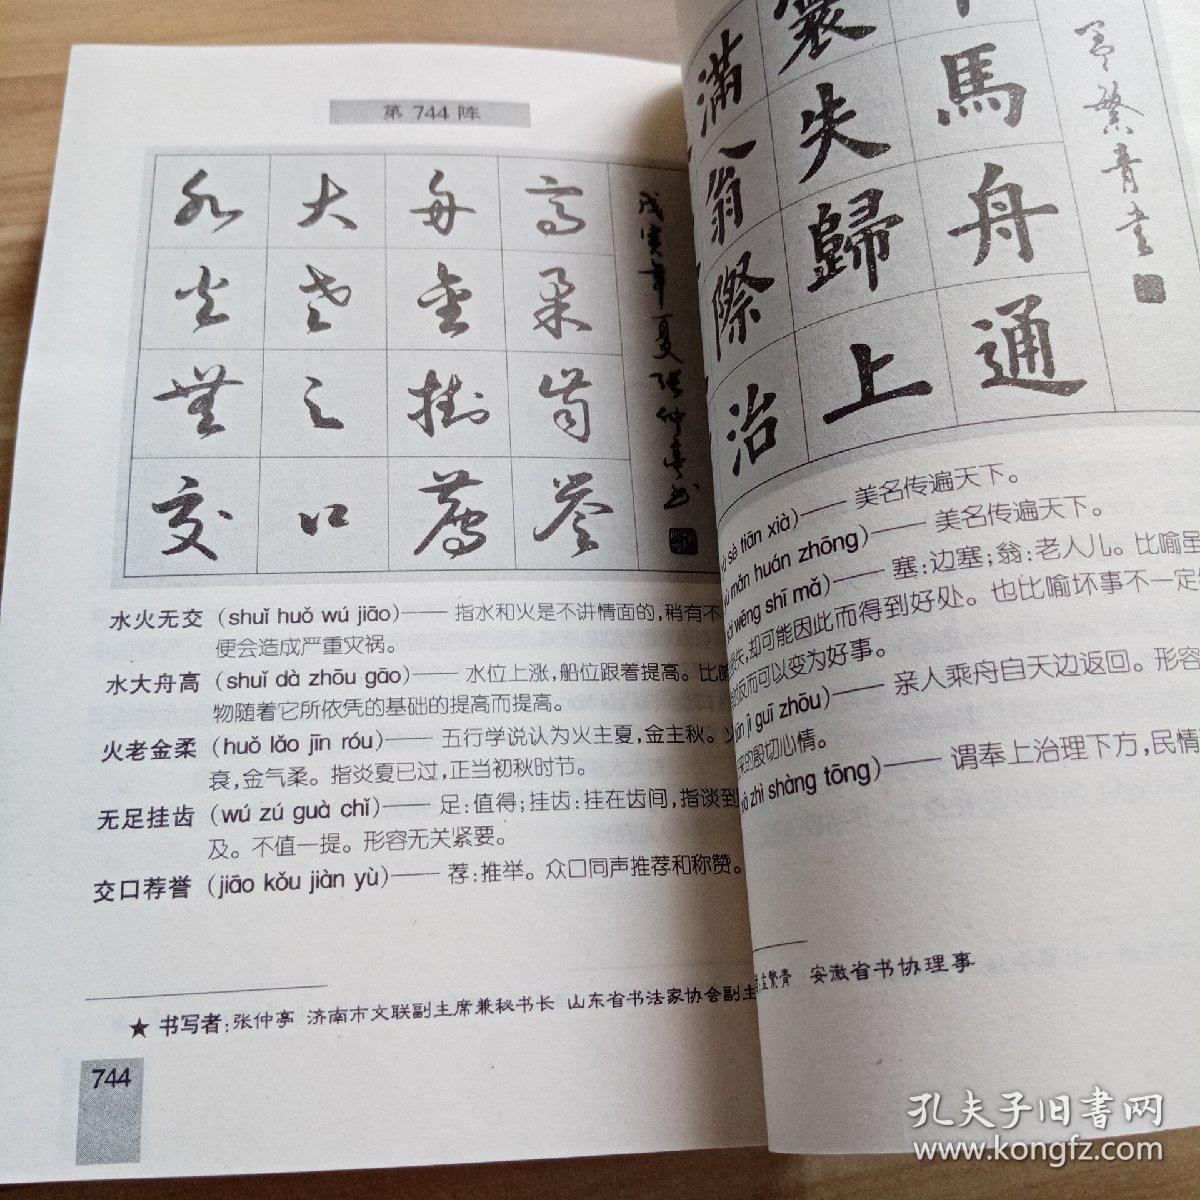 第 744 阵
水 大 舟 高
火 老 金 柔
无 之 挂 齿
交 口 荐 誉
戊寅年夏张仲亭书
水火无交 (shuǐ huǒ wú jiāo)—— 指水和火是不讲情面的,稍有不
便会造成严重灾祸。
水大舟高 (shuǐ dà zhōu gāo)—— 水位上涨,船位跟着提高。比喻
物随着它所依凭的基础的提高而提高。
火老金柔 (huǒ lǎo jīn róu)—— 五行学说认为火主夏,金主秋。火
衰,金气柔。指炎夏已过,正当初秋时节。
无足挂齿 (wú zú guà chǐ)—— 足:值得;挂齿:挂在齿间,指谈到
及。不值一提。形容无关紧要。
交口荐誉 (jiāo kǒu jiàn yù)—— 荐:推举。众口同声推荐和称赞。
★ 书写者:张仲亭 济南市文联副主席兼秘书长 山东省书法家协会副主
744
满 囊
翁 失 馬
際 歸 舟
治 上 通
繁青书
sè tiān xià)—— 美名传遍天下。
mǎn huán zhōng)—— 美名传遍天下。
wēng shī mǎ)—— 塞:边塞;翁:老人儿。比喻
失,却可能因此而得到好处。也比喻坏事不一定
反而可以变为好事。
jì guī zhōu)—— 亲人乘舟自天边返回。形容
的殷切心情。
zhì shàng tōng)—— 谓奉上治理下方,民情
孟繁青 安徽省书协理事
孔夫子旧书网
www.kongfz.com